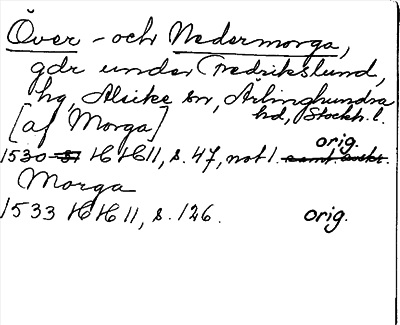 Över - och Nedermorga,
gdr under Fredrikslund,
hg, Alsike sn, Ärlinghundra
hd, Stockh. l.
[af Morga]
orig.
1530-31 HH 11, s. 47, not 1. samt avskr.
Morga
1533 HH 11, s. 126. orig.